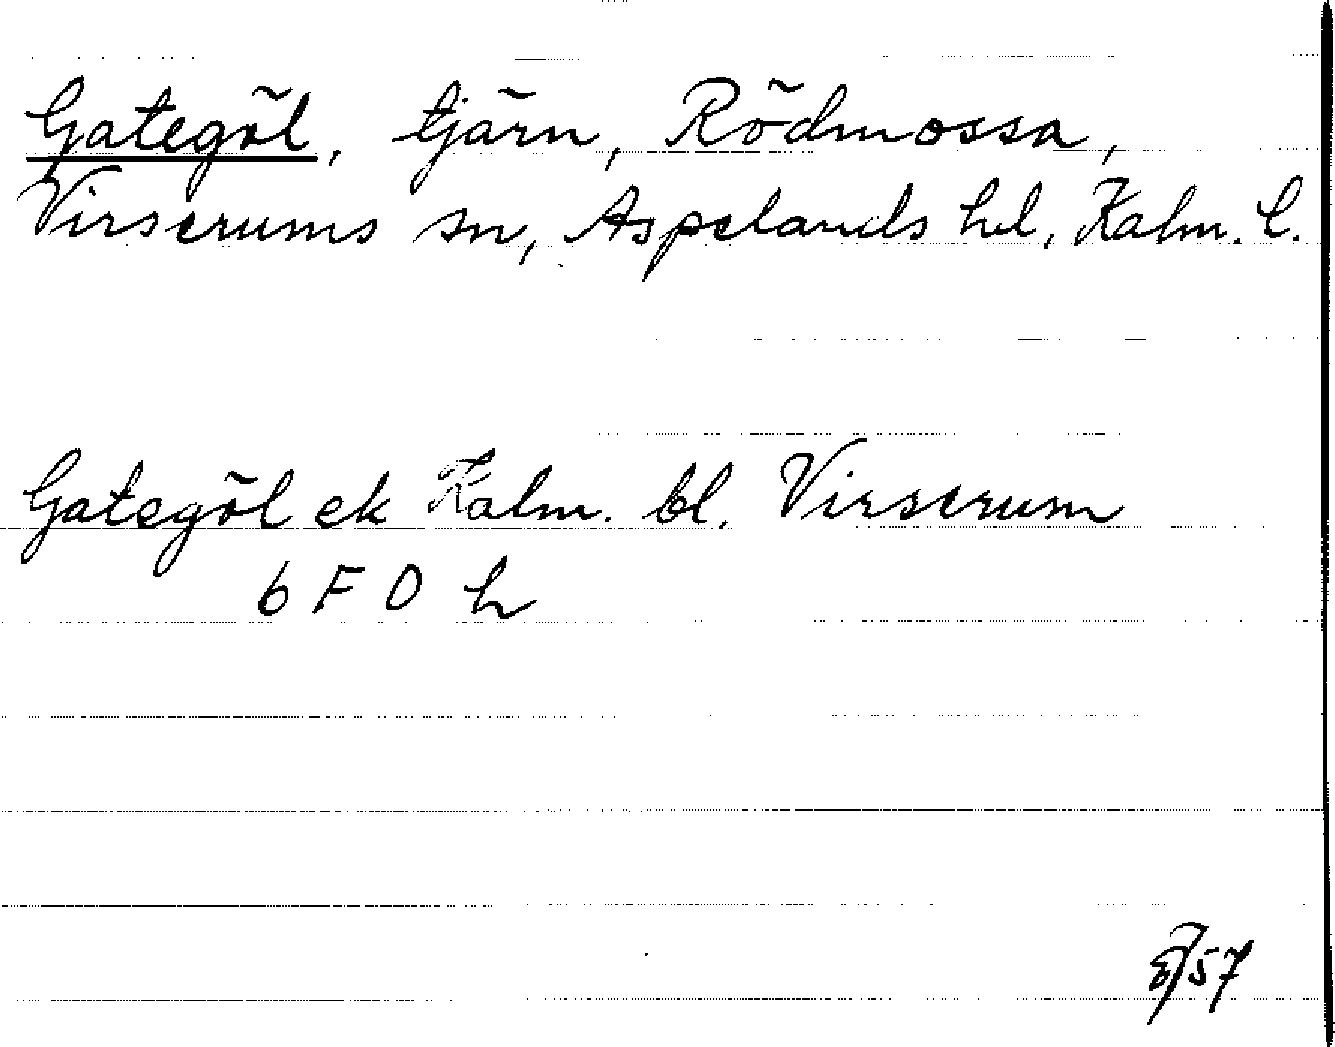 Gategöl, tjärn, Rödmossa,
Virserums sn, Aspelands hd, Kalm. l.
Gategöl ek Kalm. bl. Virserum
6 F 0 h
57